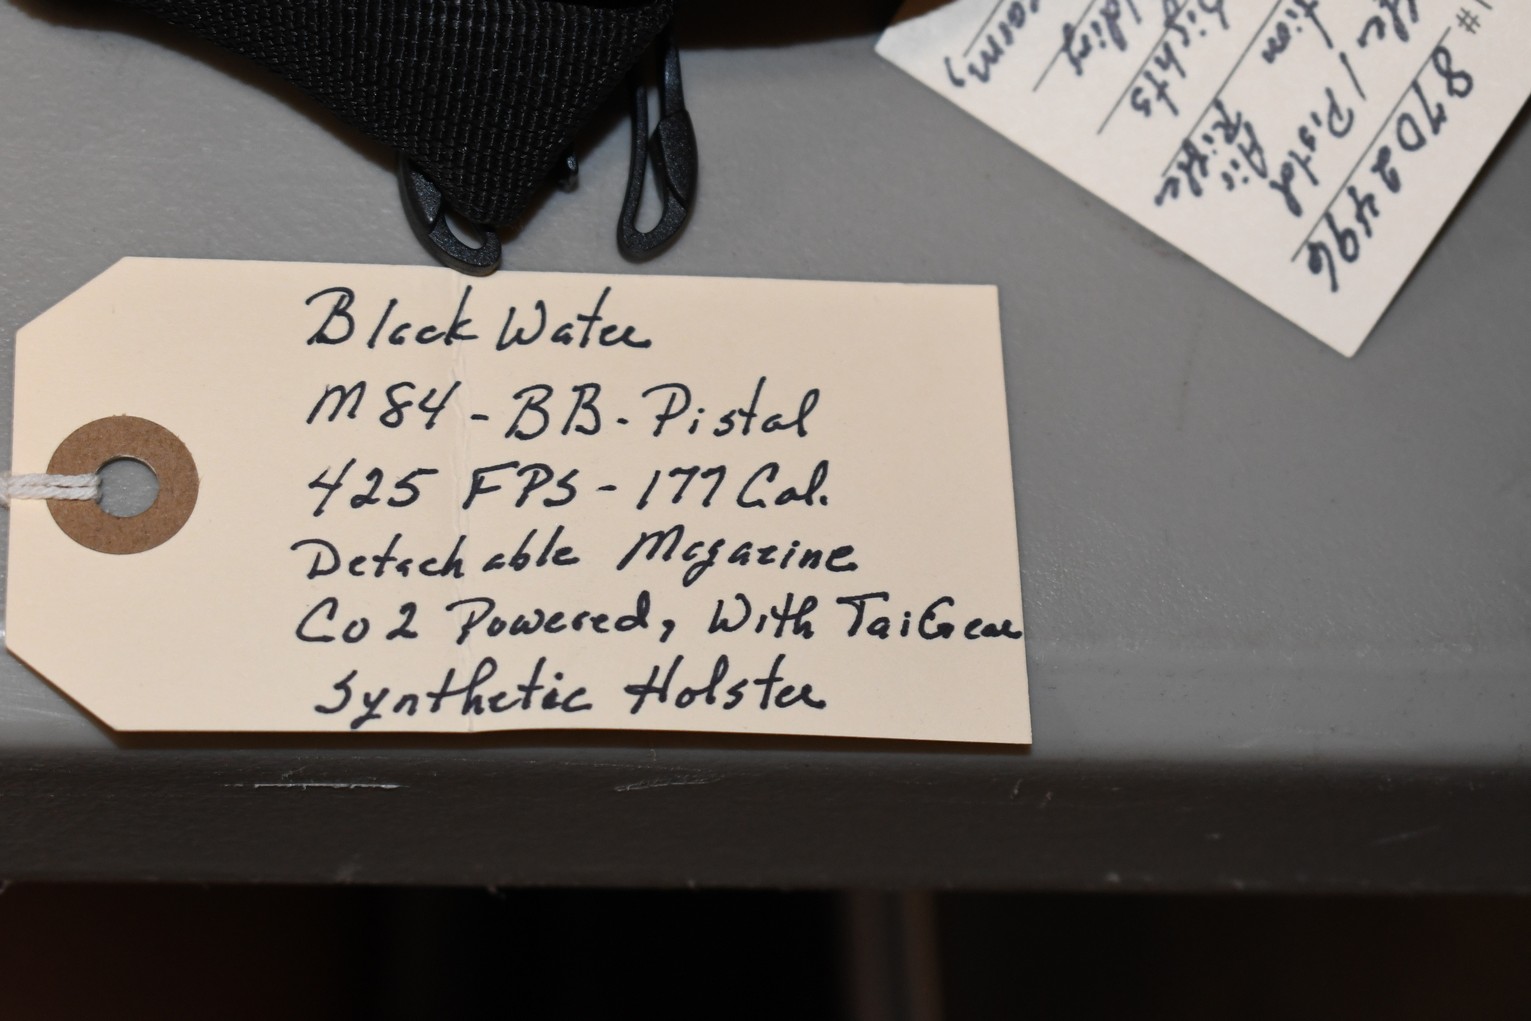 Black Water
M84-BB-Pistal
425 FPS-177 Cal.
Detachable Magazine
Co2 Powered, With TaiGear
Synthetic Holster
#
87D2496
/ Pistol
Air
Rifle